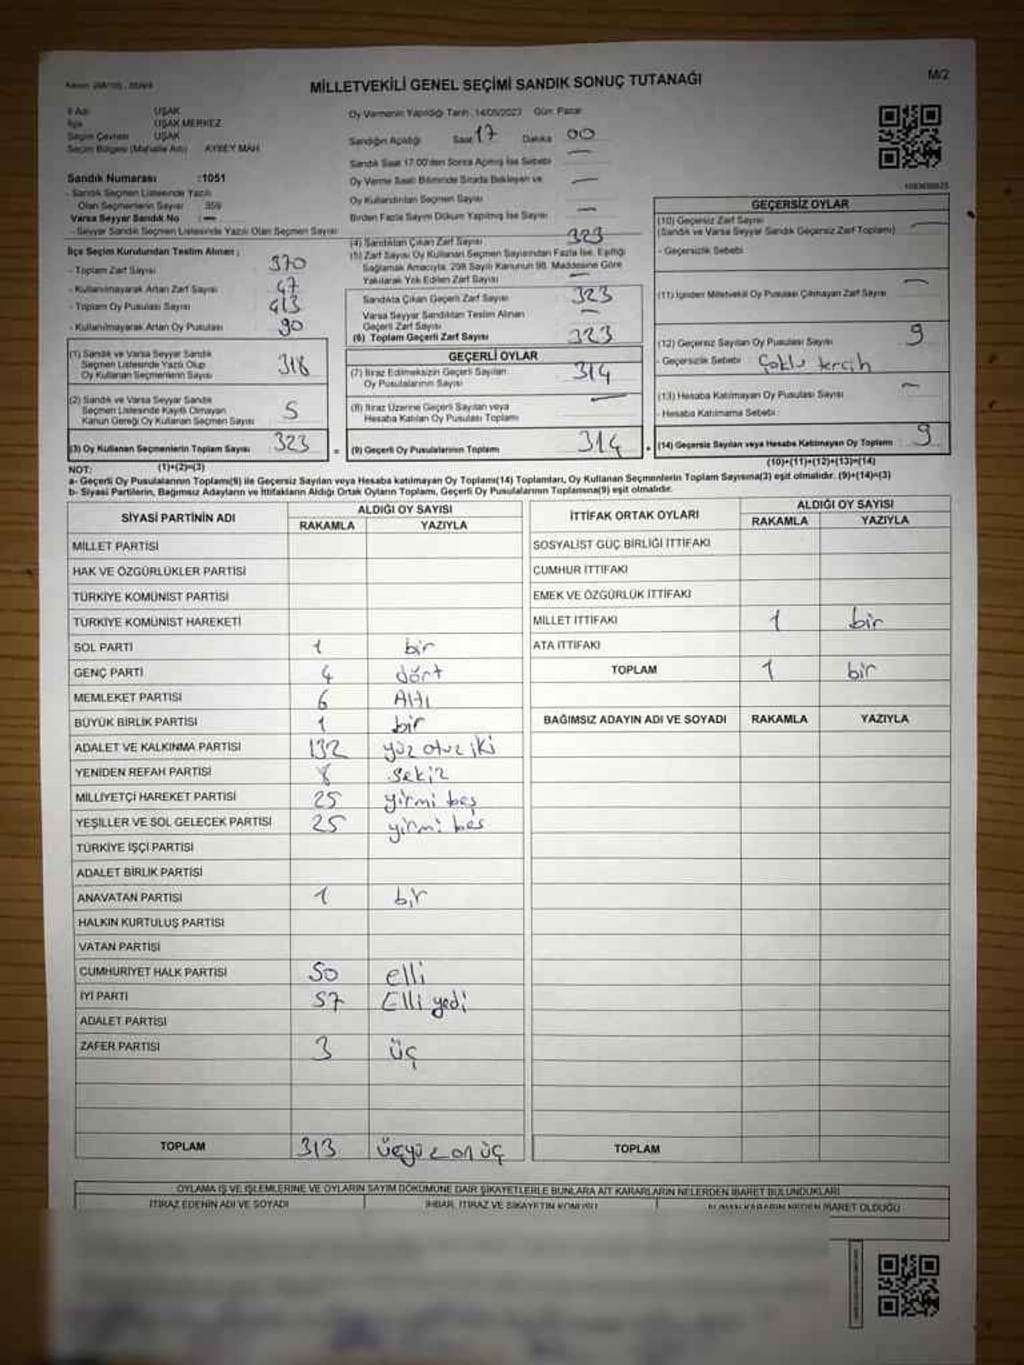 MİLLETVEKİLİ GENEL SEÇİMİ SANDIK SONUÇ TUTANAĞI
M/2
İl Adı UŞAK
İlçe UŞAK MERKEZ
Seçim Çevresi UŞAK
Seçim Bölgesi (Mahalle Adı) AYBEY MAH.
Sandık Numarası :1051
- Sandık Seçmen Listesinde Yazılı
Olan Seçmenlerin Sayısı 359
Varsa Seyyar Sandık No : —
- Seyyar Sandık Seçmen Listesinde Yazılı Olan Seçmen Sayısı
İlçe Seçim Kurulundan Teslim Alınan ;
- Toplam Zarf Sayısı 370
- Kullanılmayarak Artan Zarf Sayısı 47
- Toplam Oy Pusulası Sayısı 413
- Kullanılmayarak Artan Oy Pusulası 90
(1) Sandık ve Varsa Seyyar Sandık
Seçmen Listesinde Yazılı Olup
Oy Kullanan Seçmenlerin Sayısı 318
(2) Sandık ve Varsa Seyyar Sandık
Seçmen Listesinde Kayıtlı Olmayan
Kanun Gereği Oy Kullanan Seçmen Sayısı 5
(3) Oy Kullanan Seçmenlerin Toplam Sayısı 323
(1)+(2)=(3)
Oy Vermenin Yapıldığı Tarih : 14/05/2023 Gün: Pazar
Sandığın Açıldığı Saat 17 Dakika 00
Sandık Saat 17:00'den Sonra Açılmış İse Sebebi —
Oy Verme Saati Bitiminde Sırada Bekleyen ve
Oy Kullandırılan Seçmen Sayısı —
Birden Fazla Sayım Döküm Yapılmış İse Sayısı —
(4) Sandıktan Çıkan Zarf Sayısı 323
(5) Zarf Sayısı Oy Kullanan Seçmen Sayısından Fazla İse, Eşitliği
Sağlamak Amacıyla, 298 Sayılı Kanunun 98. Maddesine Göre
Yakılarak Yok Edilen Zarf Sayısı
Sandıkta Çıkan Geçerli Zarf Sayısı 323
Varsa Seyyar Sandıktan Teslim Alınan
Geçerli Zarf Sayısı —
(6) Toplam Geçerli Zarf Sayısı 323
GEÇERLİ OYLAR
(7) İtiraz Edilmeksizin Geçerli Sayılan
Oy Pusulalarının Sayısı 314
(8) İtiraz Üzerine Geçerli Sayılan veya
Hesaba Katılan Oy Pusulası Toplamı —
= (9) Geçerli Oy Pusulalarının Toplamı 314
GEÇERSİZ OYLAR
(10) Geçersiz Zarf Sayısı
(Sandık ve Varsa Seyyar Sandık Geçersiz Zarf Toplamı) —
- Geçersizlik Sebebi
(11) İçinden Milletvekili Oy Pusulası Çıkmayan Zarf Sayısı —
(12) Geçersiz Sayılan Oy Pusulası Sayısı 9
- Geçersizlik Sebebi Çoklu tercih
(13) Hesaba Katılmayan Oy Pusulası Sayısı —
- Hesaba Katılmama Sebebi
+ (14) Geçersiz Sayılan veya Hesaba Katılmayan Oy Toplamı 9
(10)+(11)+(12)+(13)=(14)
NOT:
a- Geçerli Oy Pusulalarının Toplamı(9) ile Geçersiz Sayılan veya Hesaba katılmayan Oy Toplamı(14) Toplamları, Oy Kullanan Seçmenlerin Toplam Sayısına(3) eşit olmalıdır. (9)+(14)=(3)
b- Siyasi Partilerin, Bağımsız Adayların ve İttifakların Aldığı Ortak Oyların Toplamı, Geçerli Oy Pusulalarının Toplamına(9) eşit olmalıdır.
SİYASİ PARTİNİN ADI ALDIĞI OY SAYISI
RAKAMLA YAZIYLA
MİLLET PARTİSİ
HAK VE ÖZGÜRLÜKLER PARTİSİ
TÜRKİYE KOMÜNİST PARTİSİ
TÜRKİYE KOMÜNİST HAREKETİ
SOL PARTİ 1 bir
GENÇ PARTİ 4 dört
MEMLEKET PARTİSİ 6 Altı
BÜYÜK BİRLİK PARTİSİ 1 bir
ADALET VE KALKINMA PARTİSİ 132 yüz otuz iki
YENİDEN REFAH PARTİSİ 8 sekiz
MİLLİYETÇİ HAREKET PARTİSİ 25 yirmi beş
YEŞİLLER VE SOL GELECEK PARTİSİ 25 yirmi beş
TÜRKİYE İŞÇİ PARTİSİ
ADALET BİRLİK PARTİSİ
ANAVATAN PARTİSİ 1 bir
HALKIN KURTULUŞ PARTİSİ
VATAN PARTİSİ
CUMHURİYET HALK PARTİSİ 50 elli
İYİ PARTİ 57 Elli yedi
ADALET PARTİSİ
ZAFER PARTİSİ 3 üç
TOPLAM 313 üçyüz on üç
İTTİFAK ORTAK OYLARI ALDIĞI OY SAYISI
RAKAMLA YAZIYLA
SOSYALİST GÜÇ BİRLİĞİ İTTİFAKI
CUMHUR İTTİFAKI
EMEK VE ÖZGÜRLÜK İTTİFAKI
MİLLET İTTİFAKI 1 bir
ATA İTTİFAKI
TOPLAM 1 bir
BAĞIMSIZ ADAYIN ADI VE SOYADI RAKAMLA YAZIYLA
TOPLAM
OYLAMA İŞ VE İŞLEMLERİNE VE OYLARIN SAYIM DÖKÜMÜNE DAİR ŞİKAYETLERLE BUNLARA AİT KARARLARIN NELERDEN İBARET BULUNDUKLARI
İTİRAZ EDENİN ADI VE SOYADI İHBAR, İTİRAZ VE ŞİKAYETİN KONUSU ALINAN KARARIN NEDEN İBARET OLDUĞU